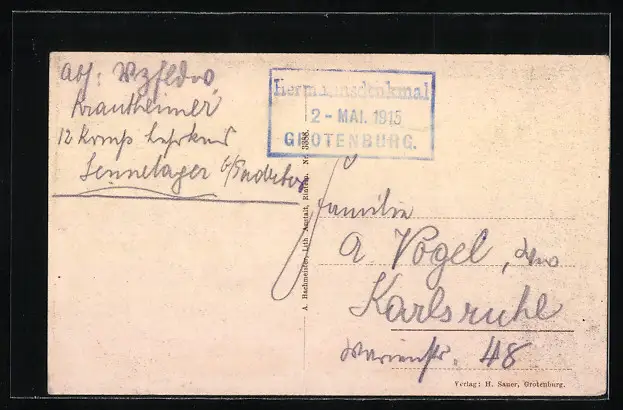 Abs: Vzfldw.
Krautheimer
12 Komp Lehrkurs
Sennelager b/Paderborn
Hermannsdenkmal
2 - MAI. 1915
GROTENBURG.
A. Hachmeister, Lith. Anstalt, Rinteln. No. 3388.
Familie
A. Vogel,
Karlsruhe
Marienstr. 48
Verlag: H. Sauer, Grotenburg.